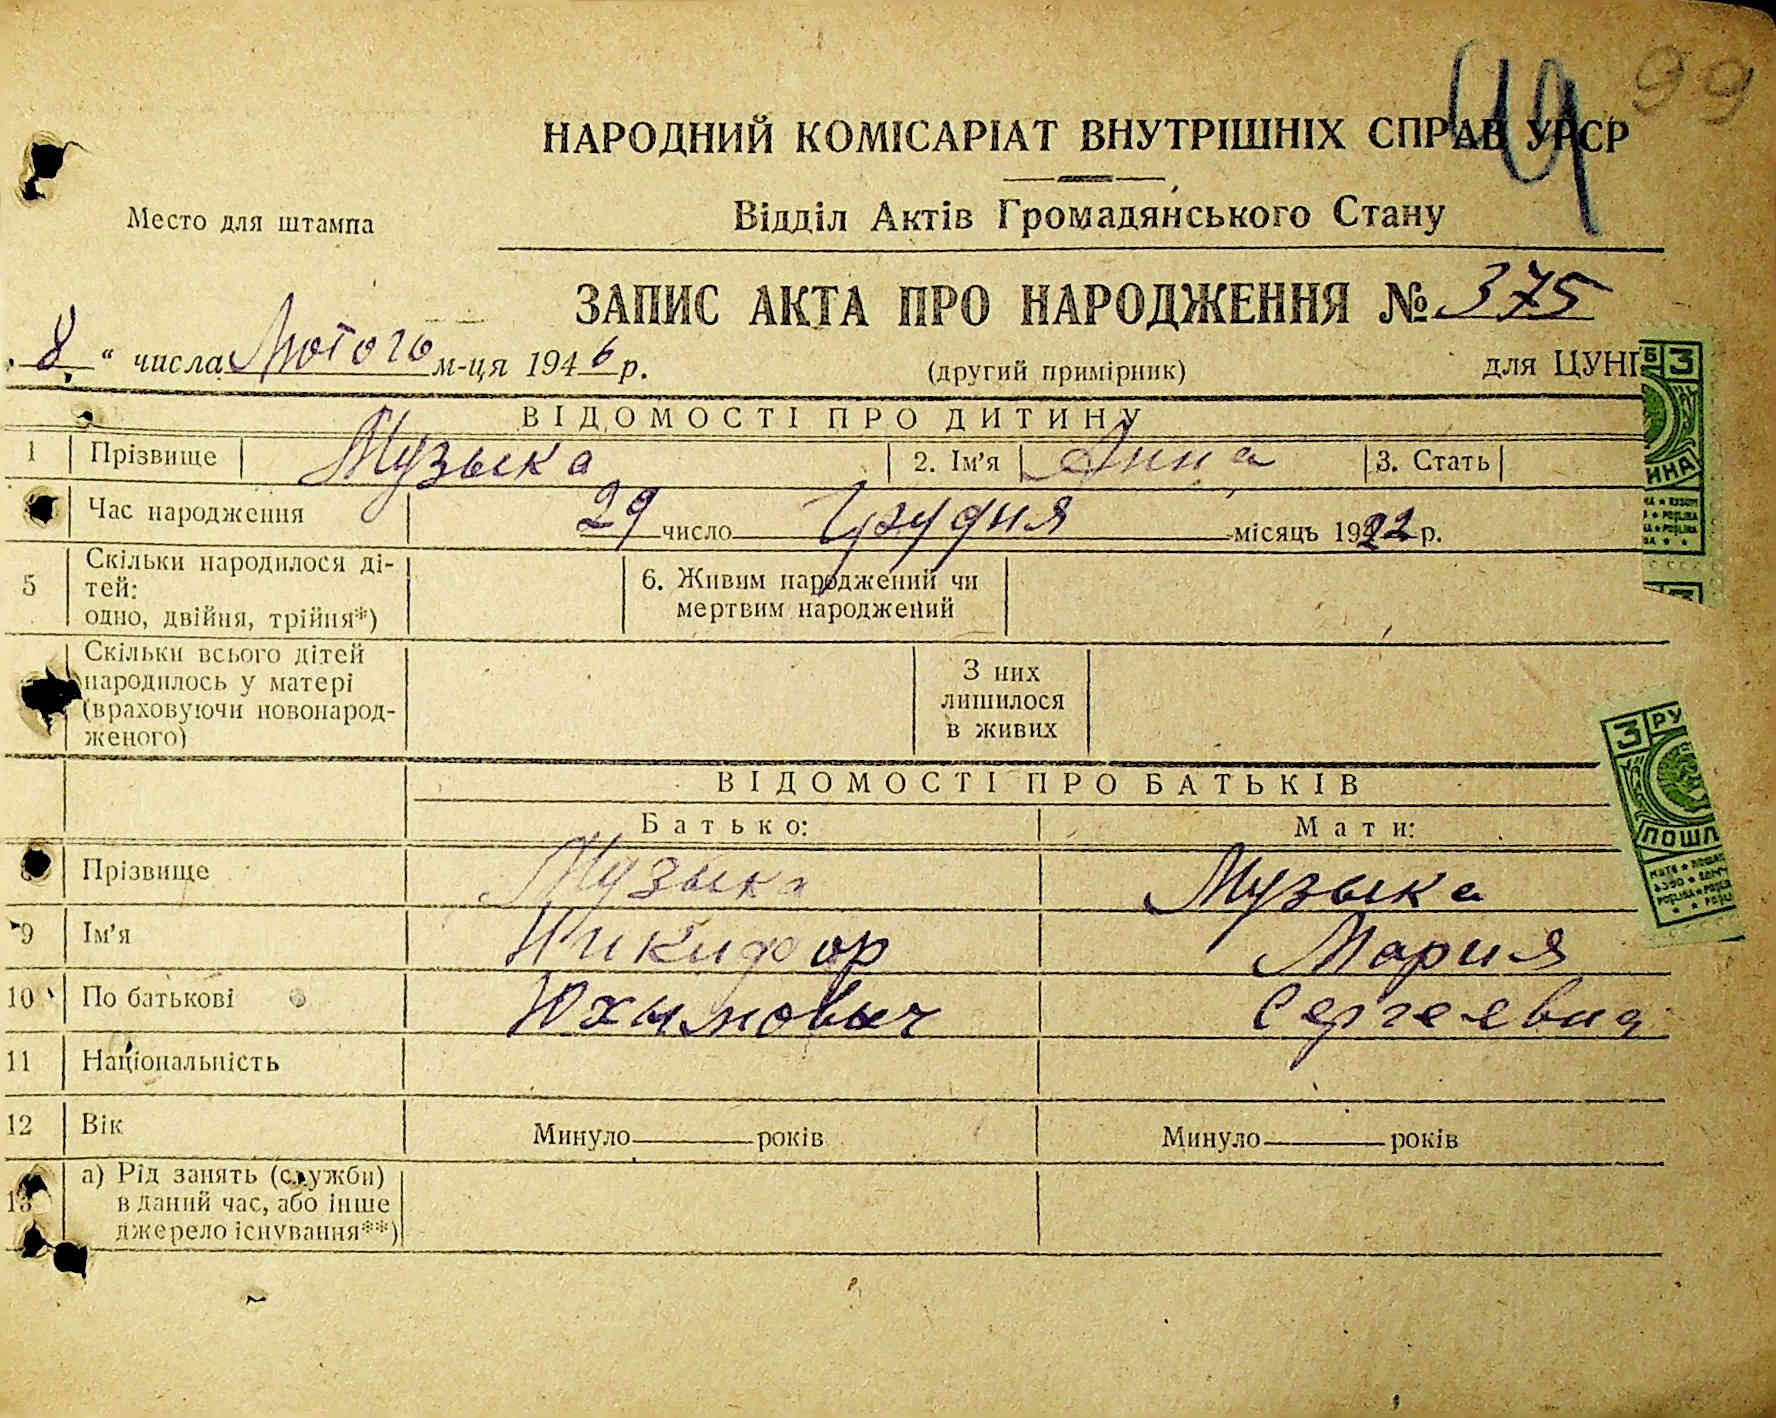 99
НАРОДНИЙ КОМІСАРІАТ ВНУТРІШНІХ СПРАВ УРСР
Место для штампа
Відділ Актів Громадянського Стану
ЗАПИС АКТА ПРО НАРОДЖЕННЯ № 375
„ 8 “ числа Лютого м-ця 1946 р. (другий примірник) для ЦУНГ
ВІДОМОСТІ ПРО ДИТИНУ
1 Прізвище Музыка 2. Ім'я Анна 3. Стать
Час народження 29 число Грудня місяць 1922 р.
5 Скільки народилося ді-
тей:
одно, двійня, трійня*)
6. Живим народжений чи
мертвим народжений
Скільки всього дітей
народилось у матері
(враховуючи новонарод-
женого)
З них
лишилося
в живих
ВІДОМОСТІ ПРО БАТЬКІВ
Батько: Мати:
Прізвище Музыка Музыка
9 Ім'я Никифор Мария
10 По батькові Юхимовыч Сергеевна
11 Національність
12 Вік Минуло ——— років Минуло ——— років
13 а) Рід занять (служби)
в даний час, або інше
джерело існування**)
З
ИНА
З РУ
ПОШЛ